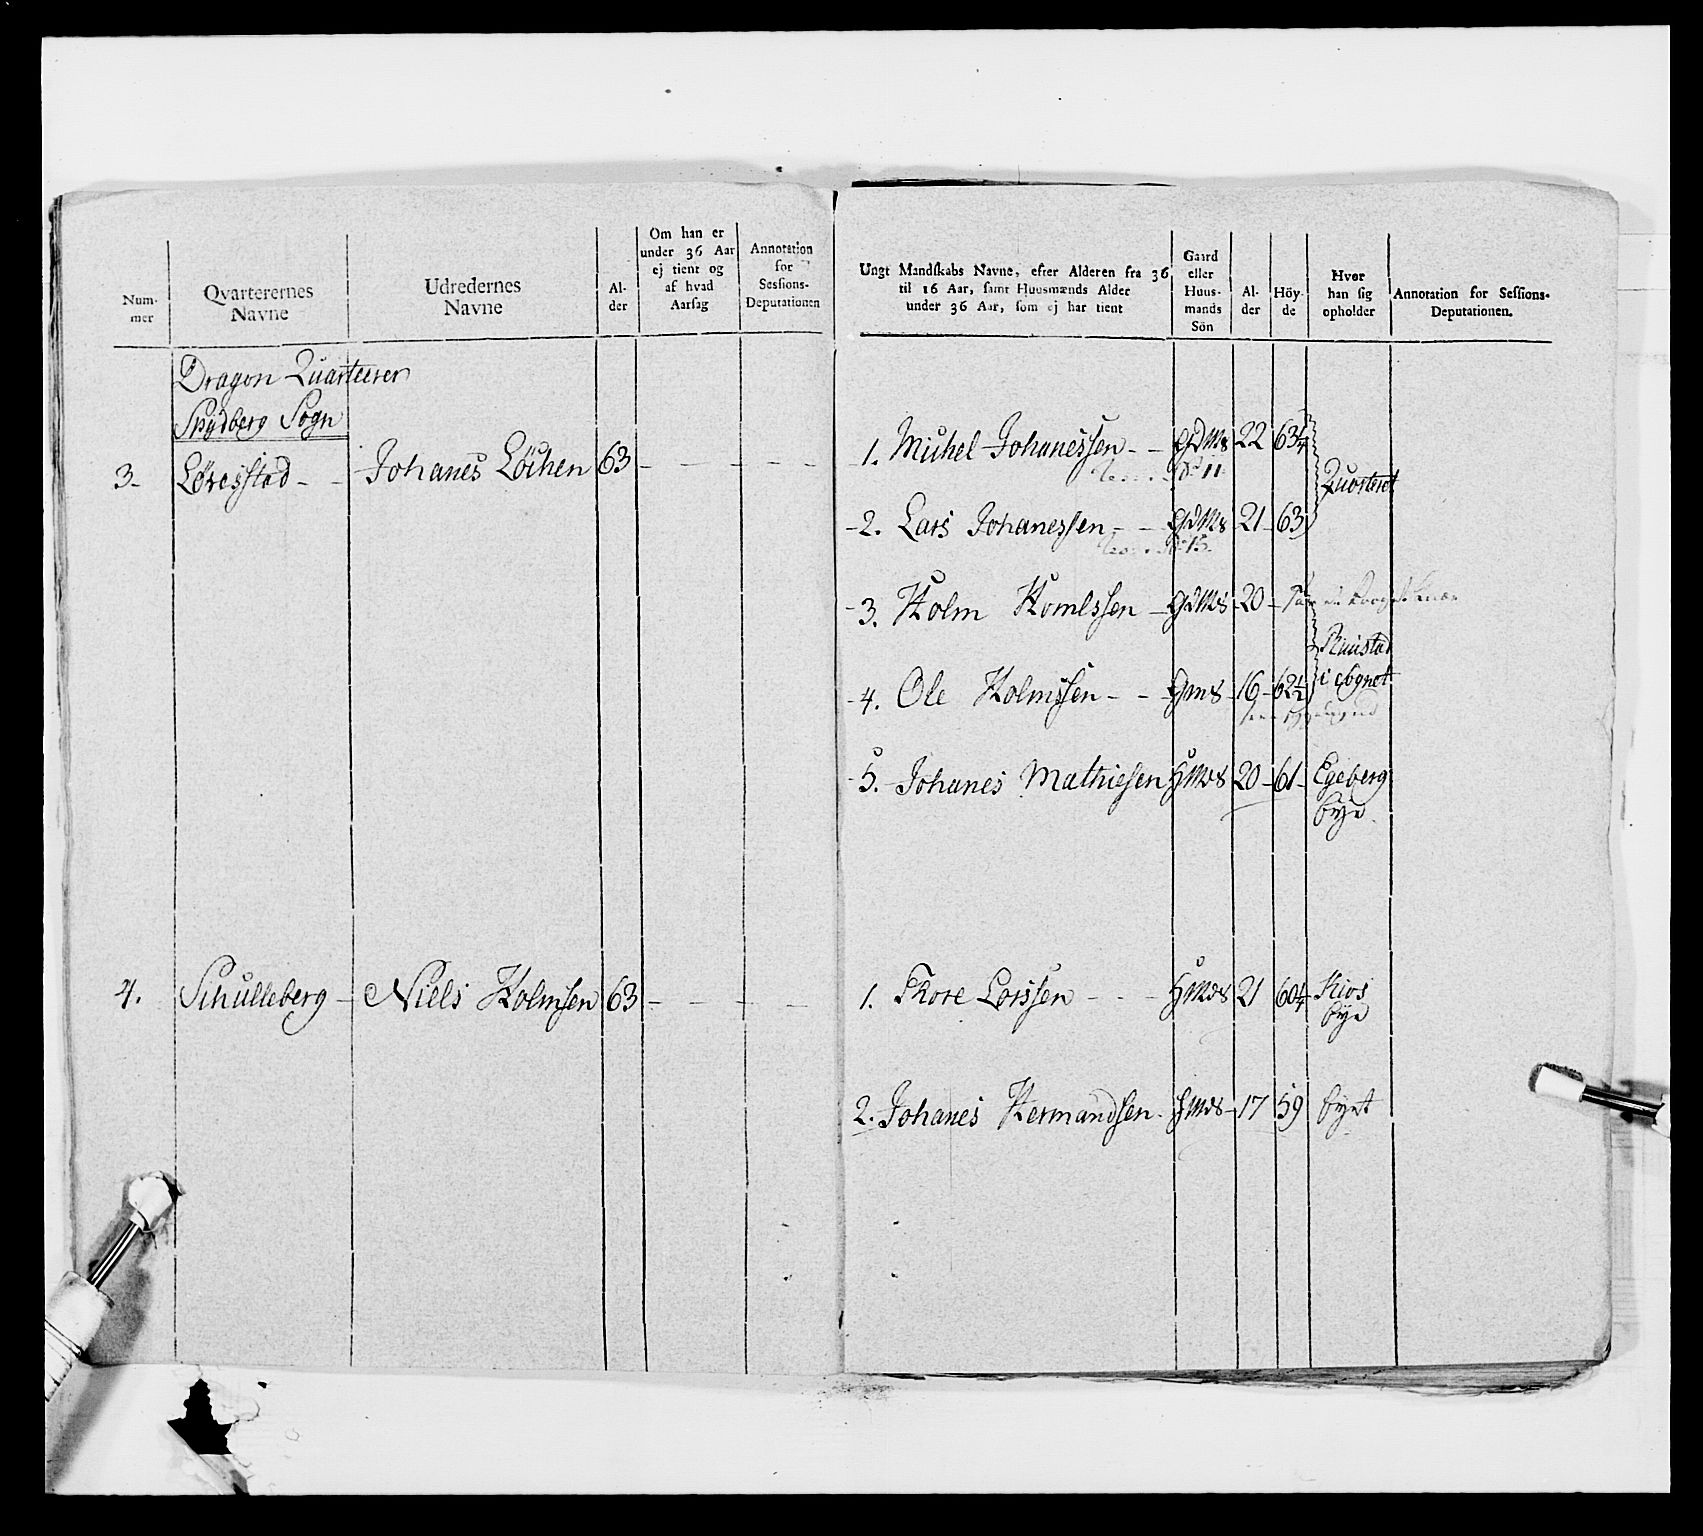 Num-
mer
Qvarterernes
Navne
Udredernes
Navne
Al-
der
Om han er
under 36 Aar
ej tient og
af hvad
Aarsag
Annotation
for
Sessions-
Deputationen
Ungt Mandskabs Navne, efter Alderen fra 36
til 16 Aar, samt Huusmænds Alder
under 36 Aar, som ej har tient
Gaard
eller
Huus-
mands
Sön
Al-
der
Höy-
de
Hvor
han sig
opholder
Annotation for Sessions-
Deputationen.
Dragon Quarteerer
Skÿdberg Sogn
3- Löresstad - - Johanes Löchen 63 - - - - - -
1. Michel Johanessen - - GdMs 22 63¼
Quarteret
2. Lars Johanessen - - GdMs 21 63
3. Holm Homlssen - GdMds 20
4. Ole Holmssen - - Gms 16 62½ Ruustad
i Sognet
5. Johanes Mathiesen HMds 20 61 Egeberg
bye
4. Schulleberg - Niels Holmsen 63 - - - -
1. Thore Lorssen - - - HMds 21 60¼ Kios
bye
2. Johanes Hermandsen. HMds 17 59 byet